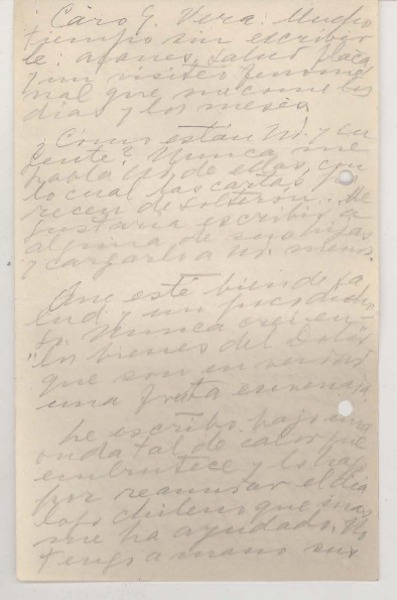 Caro G. Vera: Mucho
tiempo sin escribir
le: afanes, salud flaca
y un visiteo fenome
nal que me come los
días y los meses.
¿Cómo están Ud. y su
gente? Nunca me
habla Ud. de ellos, con
lo cual las cartas pa
recen de solterón. Me
gustaría escribir a
alguna de sus hijas
y cargarlo a Ud. menos.
Que esté bien de sa
lud y un poco dicho
so. Nunca creí en
"los bienes del Dolor"
que son en verdad
una fruta envenenada.
Le escribo bajo una
onda tal de calor que
embrutece y lo hago
por reanudar el diá
logo chileno que más
me ha ayudado. No
tengo a mano sus